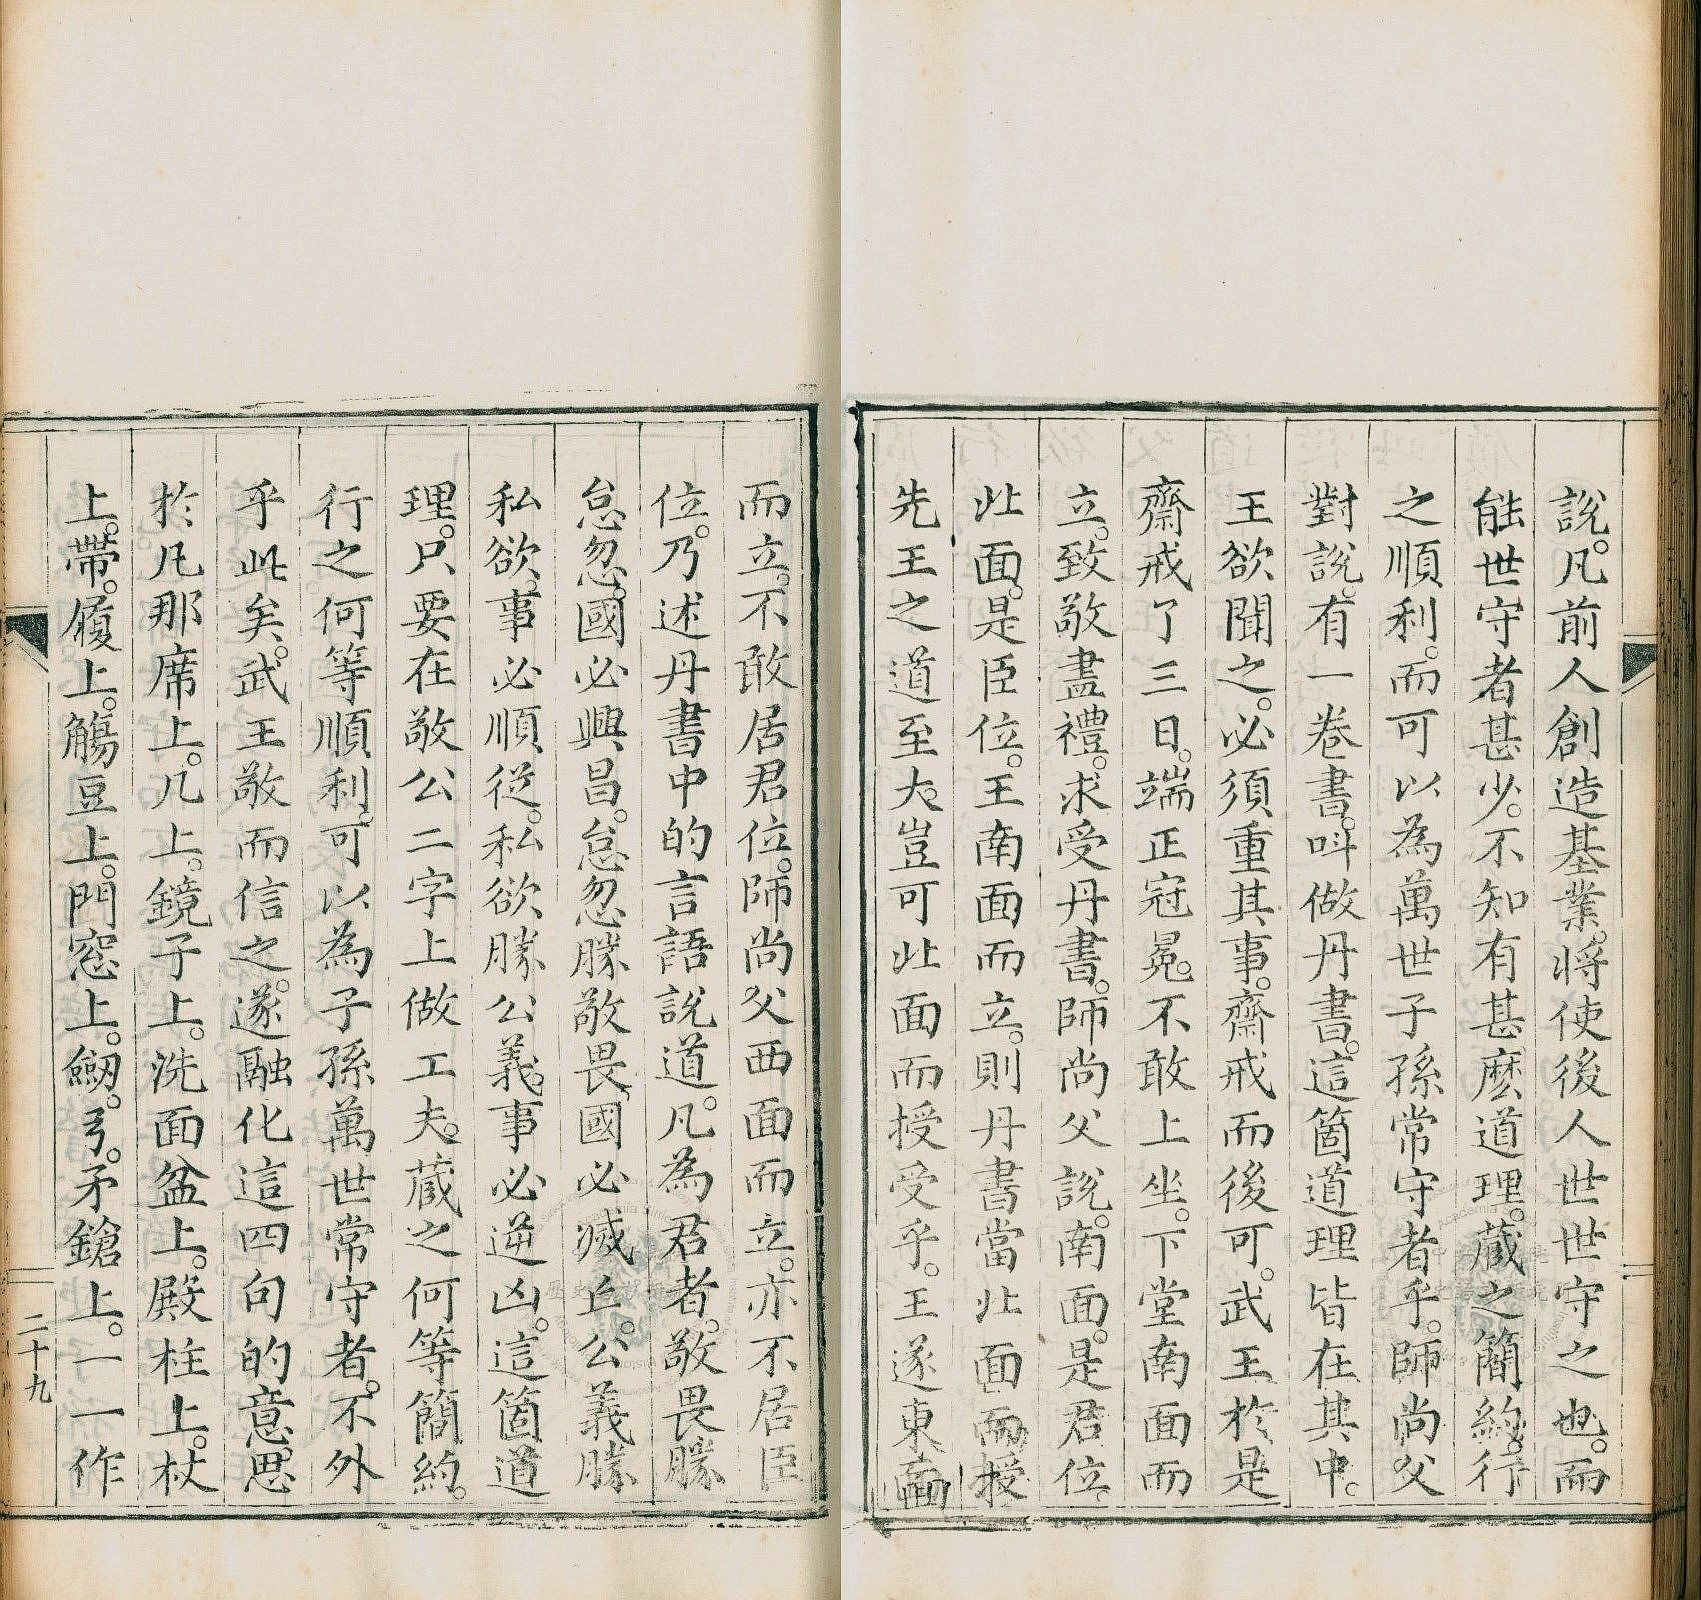 說。凡前人創造基業。將使後人世世守之也。而
能世守者甚少。不知有甚麽道理。蔵之簡約。行
之順利。而可以為萬世子孫常守者乎。師尚父
對說。有一卷書。呌做丹書。這箇道理皆在其中。
王欲聞之。必須重其事。齋戒而後可。武王於是
齋戒了三日。端正冠冕。不敢上坐。下堂南面而
立。致敬盡禮。求受丹書。師尚父說。南面。是君位。
北面。是臣位。王南面而立。則丹書當北面而授
先王之道至大。豈可北面而授受乎。王遂東面
而立。不敢居君位。師尚父西面而立。亦不居臣
位。乃述丹書中的言語說道。凡為君者。敬畏勝
怠忽。國必興昌。怠忽勝敬畏。國必滅亡。公義勝
私欲。事必順從。私欲勝公義。事必逆凶。這箇道
理。只要在敬公二字上做工夫。蔵之何等簡約。
行之何等順利。可以為子孫萬世常守者。不外
乎此矣。武王敬而信之。遂融化這四句的意思
於凡那席上。几上。鏡子上。洗面盆上。殿柱上。杖
上。帶。履上。觴豆上。門窓上。劒。弓。矛鎗上。一一作
二十九